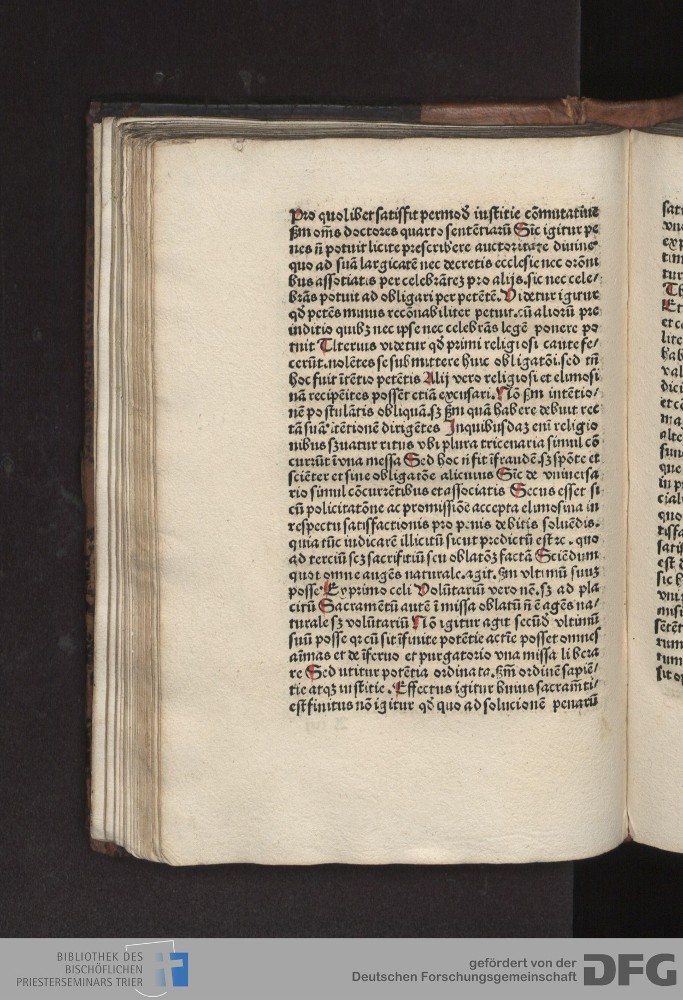 Pro quolibet satisfit per modū iusticie cōmutatiue
ẜm om̄s doctores quarto sentētiarū Sic igitur pe
nes n̄ potuit licite prescribere auctoritate diuine
quo ad suā largicatē nec decretis ecclesie nec orōni
bus assotiatis per celebrātez pro alijs. sic nec cele/
brās potuit ad obligari per petētē. Videtur igitur
qd̄ petēs minus recōnabiliter petiuit. cū aliorū pre
inditio quibꝫ nec ipse nec celebrās legē ponere po
tuit Ulterius videtur qd̄ primi religiosi caute fe/
cerūt. nolētes se submittere huic obligatōi. sed tn̄
hoc fuit ītētio petētis Alij vero religiosi et elimosi
nā recipiētes possēt etiā excusari. Nō ẜm intētio/
nē postulātis obliquā. sꝫ ẜm quā habere debuit rec
tā suā itētionē dirigētes Inquibusdaꝫ eni religio
nibus sꝫuatur ritus vbi plura tricenaria simul cō
currūt ī vna messa Sed hoc n̄ fit īfraudē. sꝫ spōte et
sciēter et sine obligatōe alicuius Sic de vniuersa
rio simul cōcurrētibus et associatis Secus esset si
cū policitatōne ac promissiōe accepta elimosina in
respectu satisfactionis pro penis debitis soluēdis.
quia tūc indicarē illicitū sicut predictū est ꝛc. quo
ad terciū scꝫ sacrifitiū seu oblatōꝫ factā Sciēdum
quot omne augēs naturale. agit. ẜm vltimū suuꝫ
posse. Exprimo celi Volūtariū vero nē. sꝫ ad pla
citū Sacramētū autē ī missa oblatū n̄ ē agēs na/
turale sꝫ volūtariū Nō igitur agit secūd vltimū
suū posse qꝛ cū sit īfinite potētie actie posset omnes
aīmas et de īferno et purgatorio vna missa libera
re Sed utitur potētia ordinata. ẜm ordinē sapiē/
tie atqꝫ iusticie. Effectus igitur huius sacramti/
est finitus nō igitur qd̄ quo ad solucionē penarū
BIBLIOTHEK DES
BISCHÖFLICHEN
PRIESTERSEMINARS TRIER
gefördert von der
Deutschen Forschungsgemeinschaft
DFG